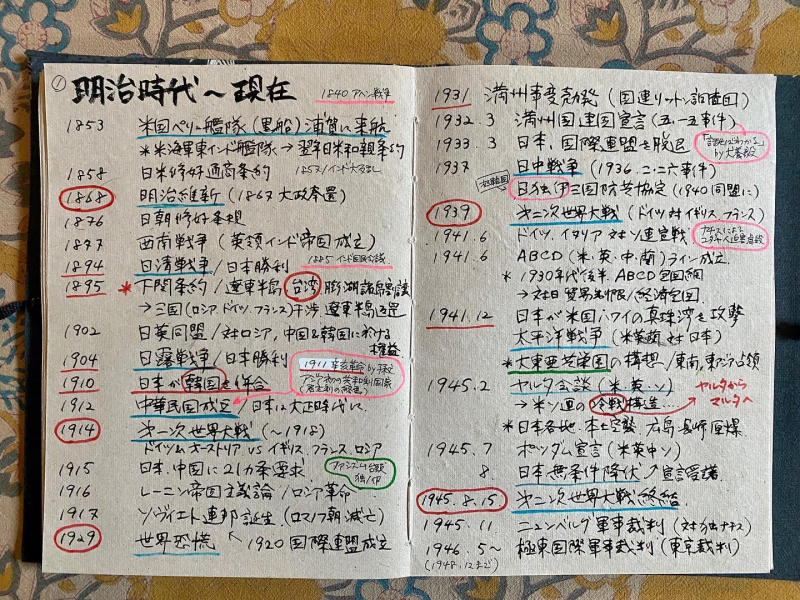 ①
明治時代〜現在
1840 アヘン戦争
1853 米国ペリー艦隊(黒船)浦賀に来航
*米海軍東インド艦隊→翌年日米和親条約
1858 日米修好通商条約 1857インド大反乱
1868 明治維新(1867 大政奉還)
1876 日朝修好条規
1877 西南戦争(英領インド帝国成立)
1894 日清戦争/日本勝利 1885 インド国民会議
1895 *下関条約/遼東半島 台湾 膨湖諸島割譲
→三国(ロシア、ドイツ、フランス)干渉 遼東半島返還
1902 日英同盟/対ロシア,中国&韓国に於ける
権益
1904 日露戦争/日本勝利
1910 日本が韓国を併合
1911 辛亥革命 by 孫文
アジア初の共和制国家
1912 中華民国成立/日本は大正時代に
1914 第一次世界大戦(〜1918)
ドイツ、オーストリア VS イギリス、フランス、ロシア
1915 日本、中国に21カ条要求
ファシズム台頭
独/伊
1916 レーニン帝国主義論/ロシア革命
1917 ソヴィエト連邦誕生(ロマノフ朝滅亡)
1929 世界恐慌 1920 国際連盟成立
1931 満州事変勃発(国連リットン調査団)
1932.3 満州国建国宣言(五・一五事件)
1933.3 日本、国際連盟を脱退
「話せばわかる」
by 犬養毅
1937 日中戦争(1936 二・二六事件)
日独伊三国防共協定(1940同盟に)
1939 第二次世界大戦(ドイツ対イギリス、フランス)
1941.6 ドイツ、イタリア 対ソ連宣戦
ナチスによる
ユダヤ人迫害
1941.6 ABCD(米・英・中・蘭)ライン成立
*1930年代後半 ABCD包囲網
→対日貿易制限/経済包囲
1941.12 日本が米国ハワイの真珠湾を攻撃
太平洋戦争(米英蘭 対 日本)
*大東亜共栄圏の構想/東南、東アジア占領
1945.2 ヤルタ会談(米・英・ソ)
→米ソ間の冷戦構造…
ヤルタから
マルタへ
*日本各地、本土空襲 広島・長崎原爆
1945.7 ポツダム宣言(米英中ソ)
8 日本無条件降伏 宣言受諾
1945.8.15 第二次世界大戦終結
1945.11 ニュンベルグ軍事裁判(対独ナチス)
1946.5〜 極東国際軍事裁判(東京裁判)
(1948.12まで)